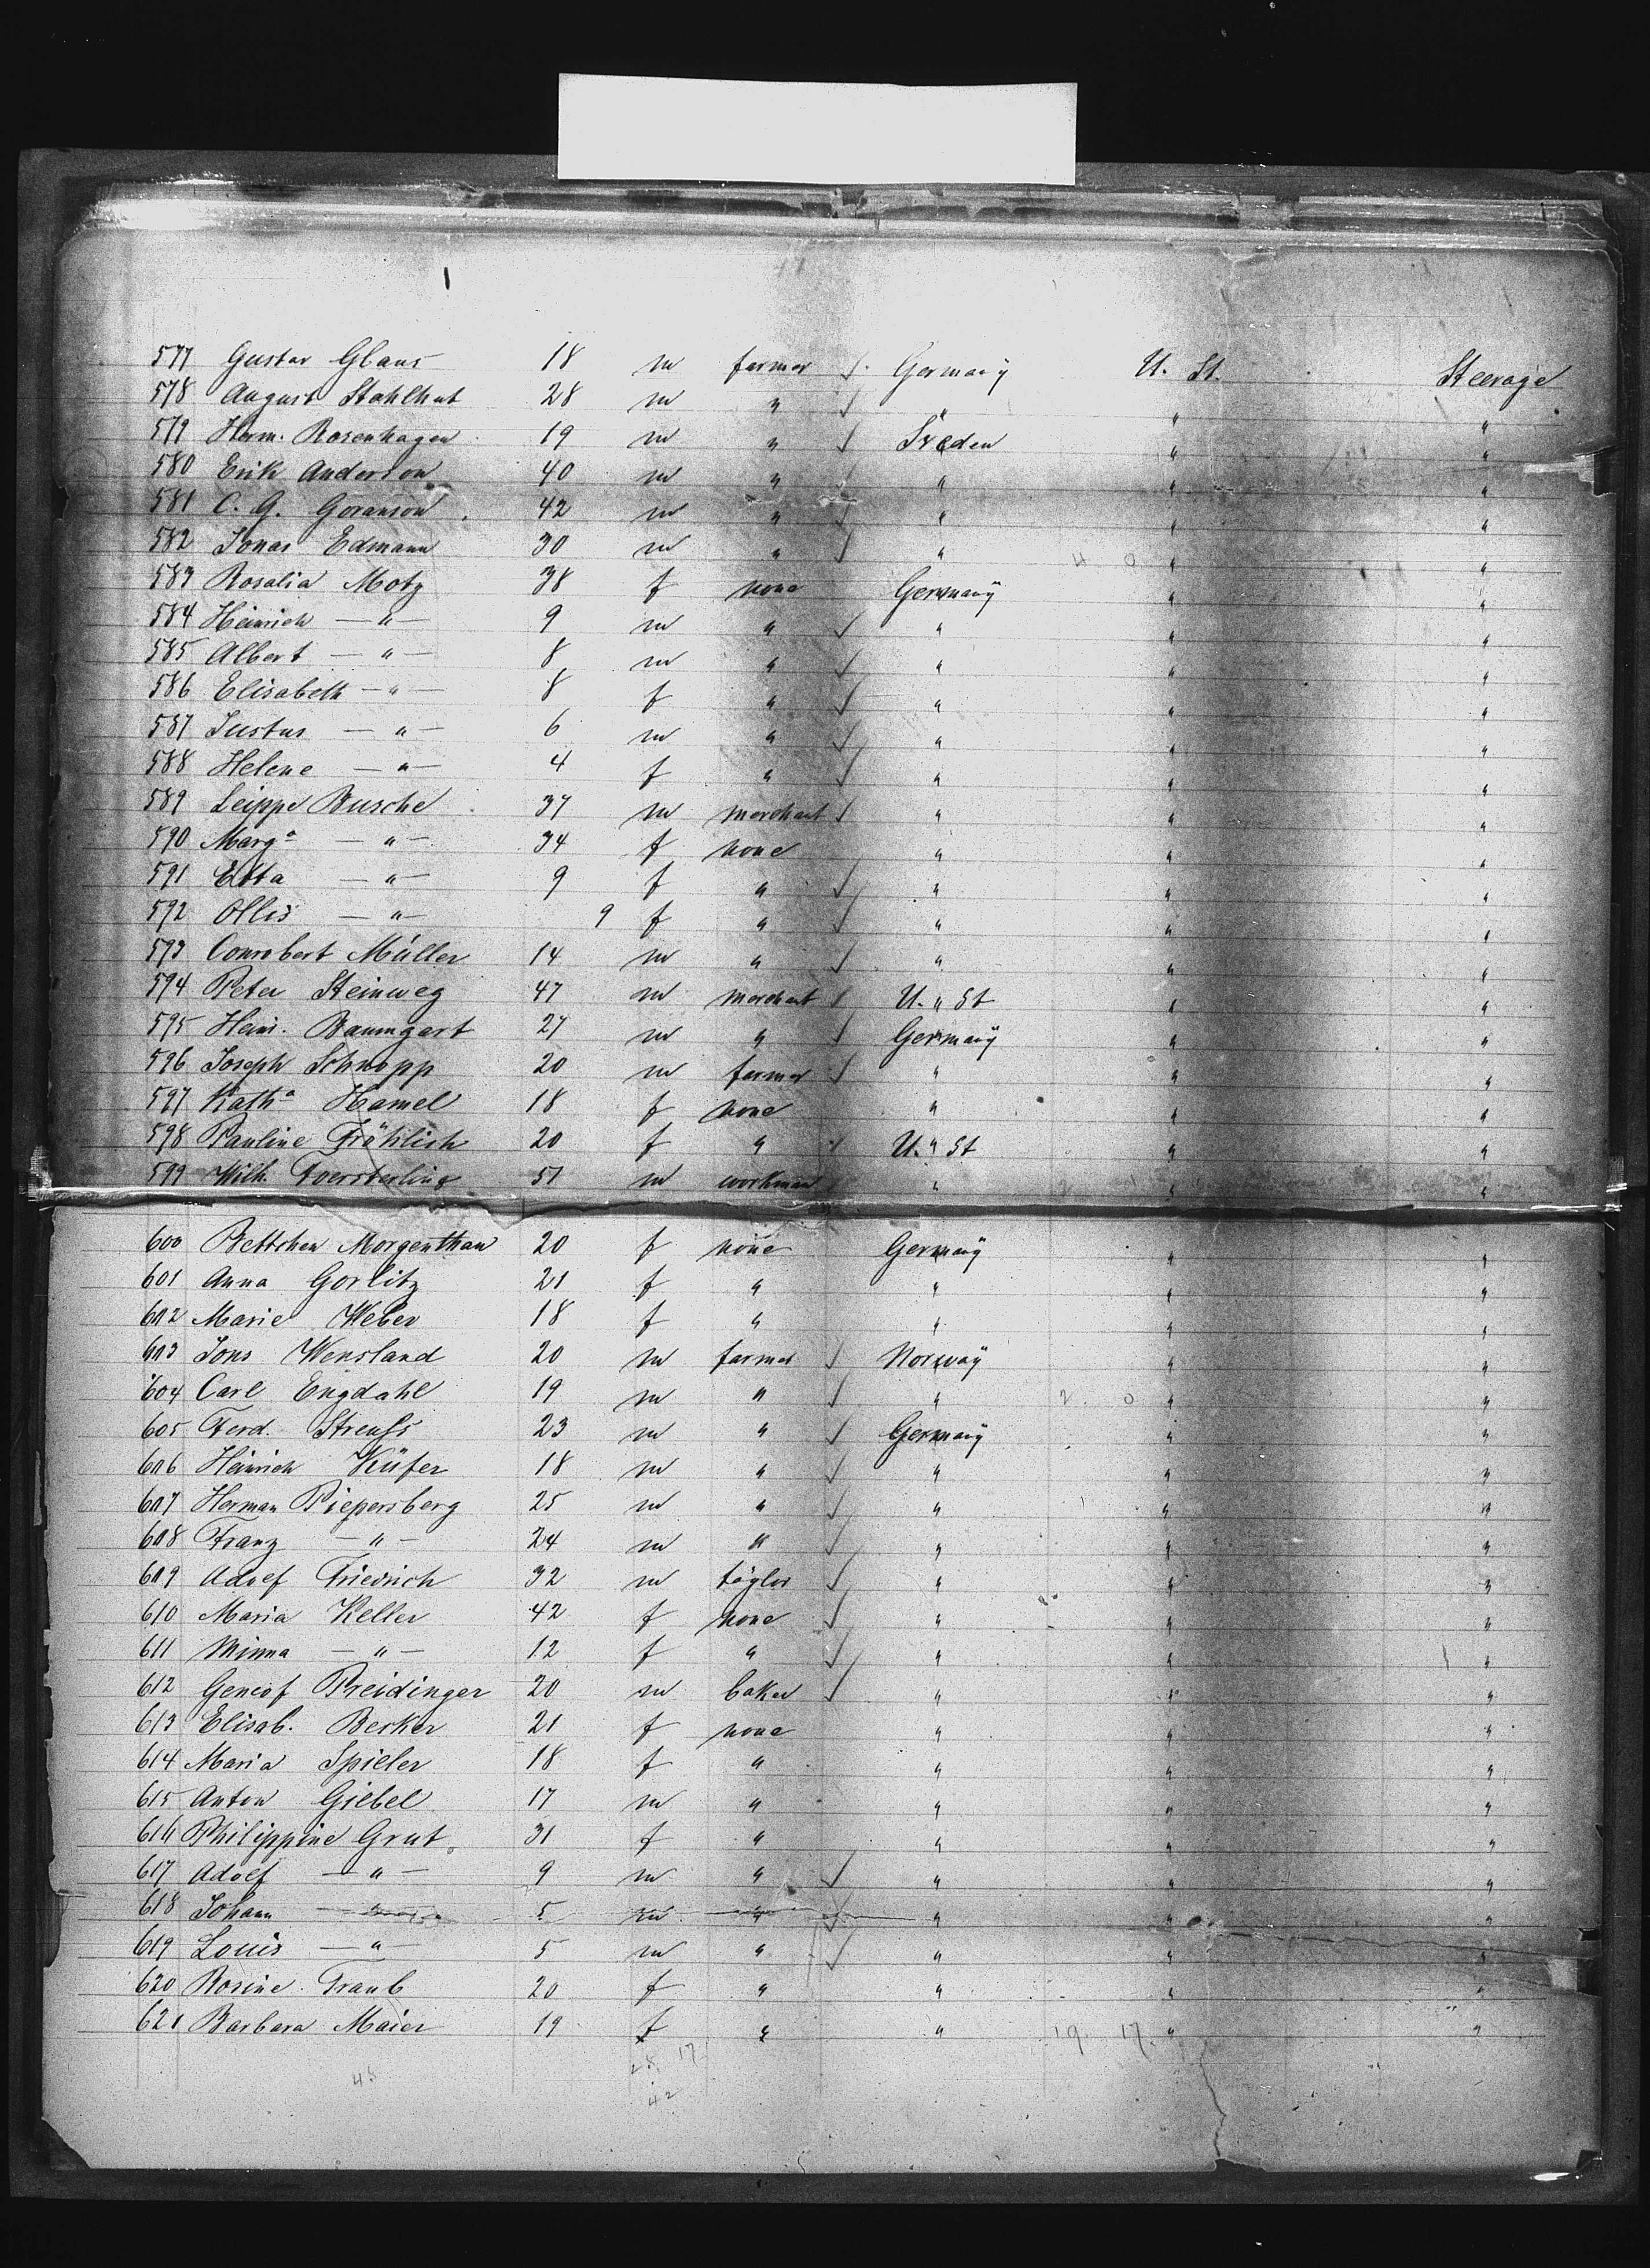 577 Gustav Glaus 18 m farmer Germany U. St. Steerage
578 August Stahlhut 28 m " " " "
579 Herm. Rosenhagen 19 m " Sveden " "
580 Erik Anderson 40 m " " " "
581 C. G. Goranson 42 m " " " "
582 Jonas Edmann 30 m " " " "
583 Rosalia Motz 38 f none Germany " "
584 Heinrich — " — 9 m " " " "
585 Albert — " — 8 m " " " "
586 Elisabeth — " — 8 f " " " "
587 Justus — " — 6 m " " " "
588 Helene — " — 4 f " " " "
589 Leippe Busche 37 m merchant " " "
590 Marga — " — 34 f none " " "
591 Etta — " — 9 f " " " "
592 Ollis — " — 9 f " " " "
593 Müller 14 m " " " "
594 Peter Steinweg 47 m merchant U. " St " "
595 Heinr. Baumgart 27 m " Germany " "
596 Joseph Schnapp 20 m farmer " " "
597 Katha Hamel 18 f none " " "
598 Pauline Fröhlich 20 f " U. " St " "
599 Wilh. Foersterling 51 m workman " " "
600 Bettchen Morgenthau 20 f none Germany " "
601 Anna Gorlitz 21 f " " " "
602 Marie Weber 18 f " " " "
603 Jons Wensland 20 m farmer Norway " "
604 Carl Engdahl 19 m " " " "
605 Ferd. Streuß 23 m " Germany " "
606 Heinrich Küfer 18 m " " " "
607 Herman Piepersberg 25 m " " " "
608 Franz — " — 24 m " " " "
609 Adolf Friedrich 32 m taylor " " "
610 Maria Keller 42 f none " " "
611 Minna — " — 12 f " " " "
612 Preidinger 20 m baker " " "
613 Elisab. Becker 21 f none " " "
614 Maria Spieler 18 f " " " "
615 Anton Giebel 17 m " " " "
616 Philippine Grut 31 f " " " "
617 Adolf — " — 9 m " " " "
618 Johann — " — 5 m " " " "
619 Louis — " — 5 m " " " "
620 Rosine Traub 20 f " " " "
621 Barbara Maier 19 f " " 19 17 " "
28 17
42